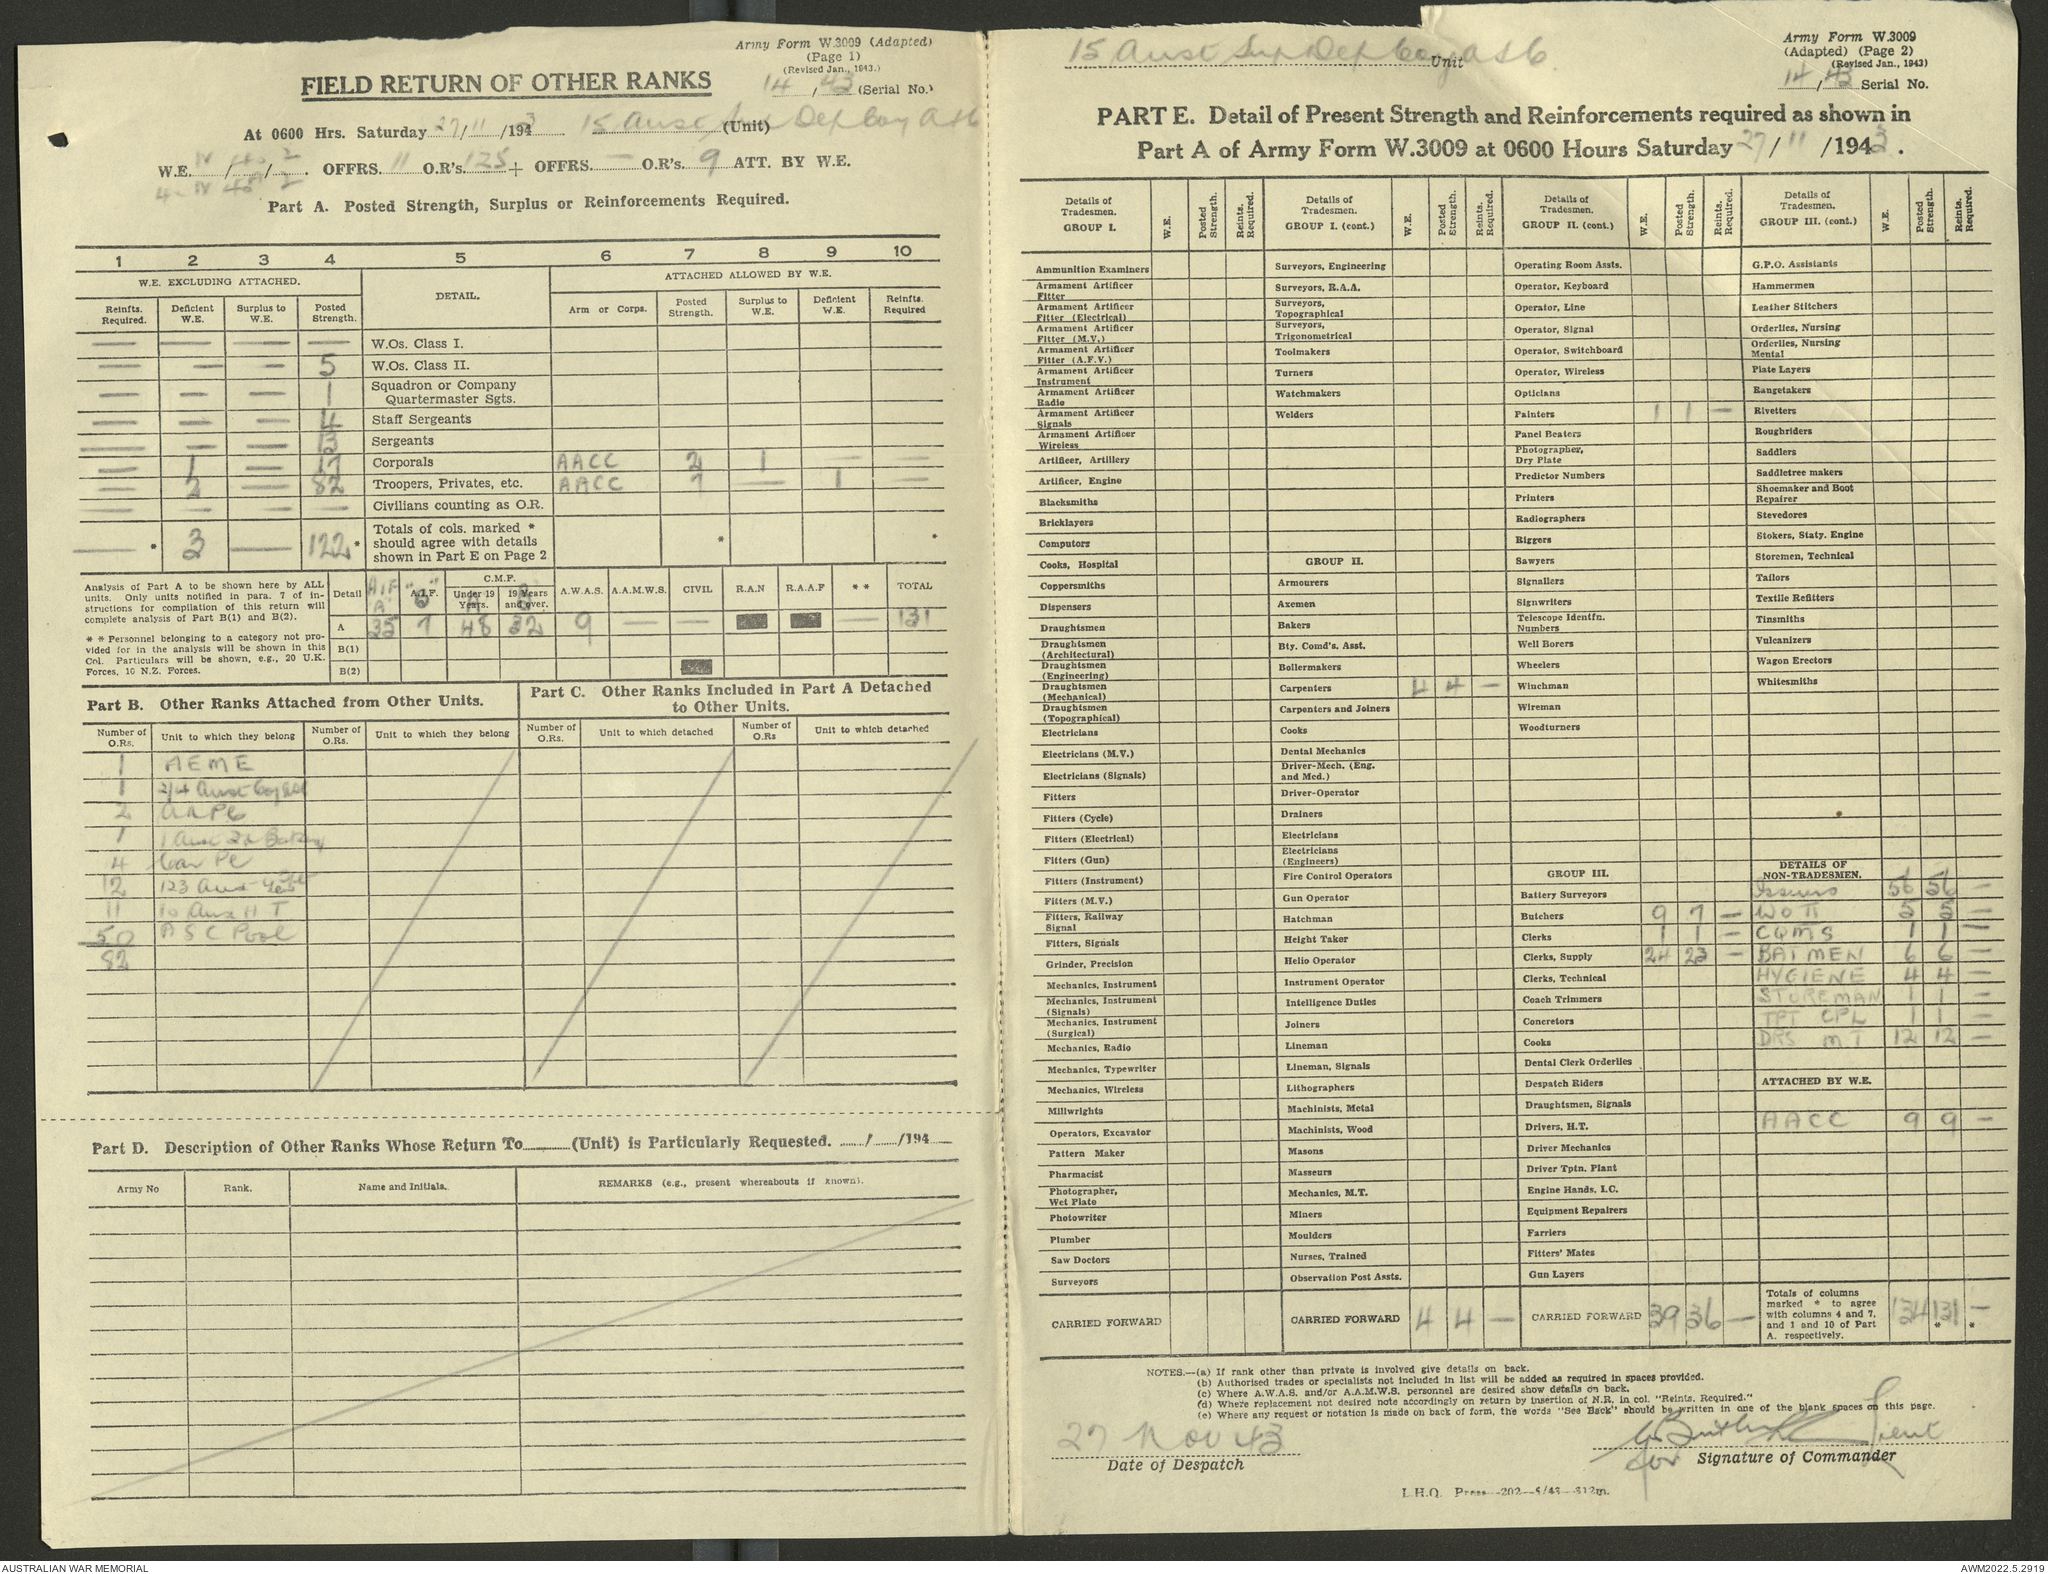 Army Form W.3009 (Adapted)
(Page 1)
(Revised Jan., 1943.)
FIELD RETURN OF OTHER RANKS
14/43 (Serial No.)
At 0600 Hrs. Saturday 27/11/1943 15 Aust Sup Dep Coy AASC (Unit)
W.E. IV / 40 / 2. OFFRS. 11 O.R's. 125 + OFFRS. — O.R's. 9 ATT. BY W.E.
Part A. Posted Strength, Surplus or Reinforcements Required.
1 2 3 4 5 6 7 8 9 10
W.E. EXCLUDING ATTACHED. DETAIL. ATTACHED ALLOWED BY W.E.
Reinfts. Required. Deficient W.E. Surplus to W.E. Posted Strength. Arm or Corps. Posted Strength. Surplus to W.E. Deficient W.E. Reinfts. Required
— — — — W.Os. Class I.
— — — 5 W.Os. Class II.
— — — 1 Squadron or Company Quartermaster Sgts.
— — — 4 Staff Sergeants
— — — 13 Sergeants
— 1 — 17 Corporals AACC 2 1 — —
— 2 — 82 Troopers, Privates, etc. AACC 7 — 1 —
— — — — Civilians counting as O.R.
— * 3 — 122 * Totals of cols. marked * should agree with details shown in Part E on Page 2 * *
Analysis of Part A to be shown here by ALL units. Only units notified in para. 7 of instructions for compilation of this return will complete analysis of Part B(1) and B(2).
* * Personnel belonging to a category not provided for in the analysis will be shown in this Col. Particulars will be shown, e.g., 20 U.K. Forces, 10 N.Z. Forces.
Detail AIF "A" "B" A.I.F. C.M.F. Under 19 Years. A 19 Years and over. B A.W.A.S. A.A.M.W.S. CIVIL R.A.N R.A.A.F * * TOTAL
A 35 7 48 32 9 — — — 131
B(1)
B(2)
Part B. Other Ranks Attached from Other Units.
Part C. Other Ranks Included in Part A Detached to Other Units.
Number of O.Rs. Unit to which they belong Number of O.Rs. Unit to which they belong Number of O.Rs. Unit to which detached Number of O.Rs Unit to which detached
1 AEME
1 2/4 Aust
2 AAPC
1 1 Aust
4 Con
12 123 Aust Gen
11 10 Aust H T
50 ASC Pool
82
Part D. Description of Other Ranks Whose Return To (Unit) is Particularly Requested. / /194
Army No Rank. Name and Initials. REMARKS (e.g., present whereabouts if known).
15 Aust Sup Dep Coy AASC Unit
Army Form W.3009
(Adapted) (Page 2)
(Revised Jan., 1943)
14/43 Serial No.
PART E. Detail of Present Strength and Reinforcements required as shown in
Part A of Army Form W.3009 at 0600 Hours Saturday 27/11/1943.
Details of Tradesmen. GROUP I. W.E. Posted Strength. Reints. Required.
Ammunition Examiners
Armament Artificer Fitter
Armament Artificer Fitter (Electrical)
Armament Artificer Fitter (M.V.)
Armament Artificer Fitter (A.F.V.)
Armament Artificer Instrument
Armament Artificer Radio
Armament Artificer Signals
Armament Artificer Wireless
Artificer, Artillery
Artificer, Engine
Blacksmiths
Bricklayers
Computors
Cooks, Hospital
Coppersmiths
Dispensers
Draughtsmen
Draughtsmen (Architectural)
Draughtsmen (Engineering)
Draughtsmen (Mechanical)
Draughtsmen (Topographical)
Electricians
Electricians (M.V.)
Electricians (Signals)
Fitters
Fitters (Cycle)
Fitters (Electrical)
Fitters (Gun)
Fitters (Instrument)
Fitters (M.V.)
Fitters, Railway Signal
Fitters, Signals
Grinder, Precision
Mechanics, Instrument
Mechanics, Instrument (Signals)
Mechanics, Instrument (Surgical)
Mechanics, Radio
Mechanics, Typewriter
Mechanics, Wireless
Millwrights
Operators, Excavator
Pattern Maker
Pharmacist
Photographer, Wet Plate
Photowriter
Plumber
Saw Doctors
Surveyors
CARRIED FORWARD
Details of Tradesmen. GROUP I. (cont.) W.E. Posted Strength. Reints. Required.
Surveyors, Engineering
Surveyors, R.A.A.
Surveyors, Topographical
Surveyors, Trigonometrical
Toolmakers
Turners
Watchmakers
Welders
GROUP II.
Armourers
Axemen
Bakers
Bty. Comd's. Asst.
Boilermakers
Carpenters 4 4 —
Carpenters and Joiners
Cooks
Dental Mechanics
Driver-Mech. (Eng. and Med.)
Driver-Operator
Drainers
Electricians
Electricians (Engineers)
Fire Control Operators
Gun Operator
Hatchman
Height Taker
Helio Operator
Instrument Operator
Intelligence Duties
Joiners
Lineman
Lineman, Signals
Lithographers
Machinists, Metal
Machinists, Wood
Masons
Masseurs
Mechanics, M.T.
Miners
Moulders
Nurses, Trained
Observation Post Assts.
CARRIED FORWARD 4 4 —
Details of Tradesmen. GROUP II. (cont.) W.E. Posted Strength. Reints. Required.
Operating Room Assts.
Operator, Keyboard
Operator, Line
Operator, Signal
Operator, Switchboard
Operator, Wireless
Opticians
Painters 1 1 —
Panel Beaters
Photographer, Dry Plate
Predictor Numbers
Printers
Radiographers
Riggers
Sawyers
Signallers
Signwriters
Telescope Identfn. Numbers
Well Borers
Wheelers
Winchman
Wireman
Woodturners
GROUP III.
Battery Surveyors
Butchers 9 7 —
Clerks 1 1 —
Clerks, Supply 24 23 —
Clerks, Technical
Coach Trimmers
Concretors
Cooks
Dental Clerk Orderlies
Despatch Riders
Draughtsmen, Signals
Drivers, H.T.
Driver Mechanics
Driver Tptn. Plant
Engine Hands, I.C.
Equipment Repairers
Farriers
Fitters' Mates
Gun Layers
CARRIED FORWARD 39 36 —
Details of Tradesmen. GROUP III. (cont.) W.E. Posted Strength. Reints. Required.
G.P.O. Assistants
Hammermen
Leather Stitchers
Orderlies, Nursing
Orderlies, Nursing Mental
Plate Layers
Rangetakers
Rivetters
Roughriders
Saddlers
Saddletree makers
Shoemaker and Boot Repairer
Stevedores
Stokers, Staty. Engine
Storemen, Technical
Tailors
Textile Refitters
Tinsmiths
Vulcanizers
Wagon Erectors
Whitesmiths
DETAILS OF NON-TRADESMEN.
Issuers 56 56 —
WO II 5 5 —
CQMS 1 1 —
BATMEN 6 6 —
HYGIENE 4 4 —
STOREMAN 1 1 —
TPT CPL 1 1 —
DRS M T 12 12 —
ATTACHED BY W.E.
AACC 9 9 —
Totals of columns marked * to agree with columns 4 and 7, and 1 and 10 of Part A. respectively. 134 131 * — *
NOTES.—(a) If rank other than private is involved give details on back.
(b) Authorised trades or specialists not included in list will be added as required in spaces provided.
(c) Where A.W.A.S. and/or A.A.M.W.S. personnel are desired show details on back.
(d) Where replacement not desired note accordingly on return by insertion of N.R. in col. "Reints. Required."
(e) Where any request or notation is made on back of form, the words "See Back" should be written in one of the blank spaces on this page.
27 Nov 43
Date of Despatch
Lieut
for Signature of Commander
L.H.Q. Press—202—5/43—312m.
AUSTRALIAN WAR MEMORIAL
AWM2022.5.2919